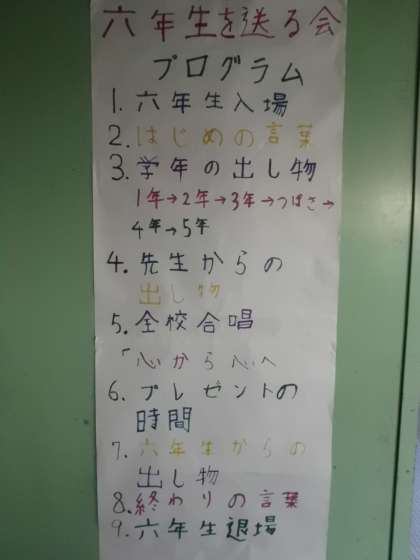 六年生を送る会
プログラム
1. 六年生入場
2. はじめの言葉
3. 学年の出し物
1年→2年→3年→つばさ→
4年→5年
4. 先生からの
出し物
5. 全校合唱
「心から心へ
6. プレゼントの
時間
7. 六年生からの
出し物
8. 終わりの言葉
9. 六年生退場